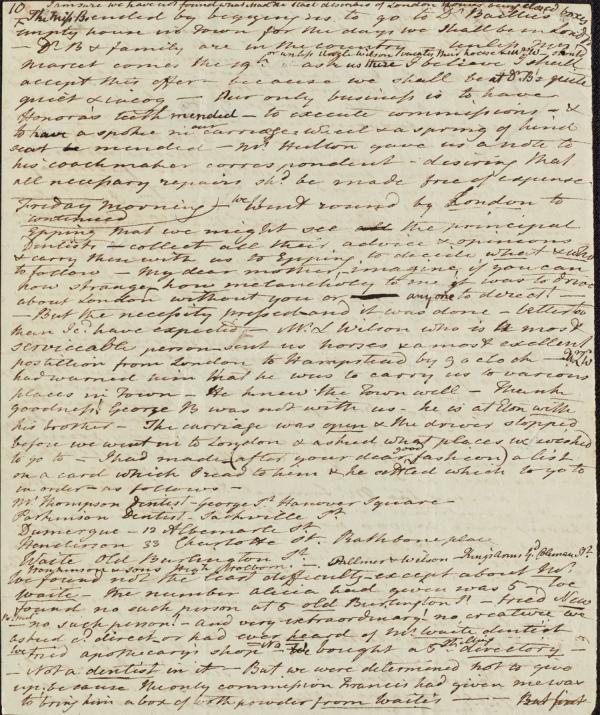 10 I'm sure we have not found out what the least disorders of London
x The Miss Bs ended by begging us to go to Dr Baillie's
empty house in Town for the days we shall be in London
- Dr B & family are in the country
accept this offer - because we shall be at Dr Bs quite
quiet & incog - Our only business is to have
Honoras teeth mended - to execute commissions - &
to have a spoke in our carriage wheel & a spring of hind
seat be mended - Mr Hulton gave us a note to
his coachmaker correspondent - desiring that
all necessary repairs shd be made free of expense -
Friday Morning - we went round by London to
continued
Epping that we might see all the principal
Dentists - collect all their advice & opinions
& carry them with us to Epping to decide what & who
to follow - My dear mother, imagine if you can
how strange how melancholy to me it was to drive
about London without you or anyone to direct! -
- But the necessity pressed and it was done - better too
than I cd have expected - Mr L Wilson who is a most
serviceable person sent us horses & a most excellent
postillion from London to Hampstead by 9 o clock - Mr L W
had warned him that he was to carry us to various
places in Town - He knew the Town well - Thank
goodness! George B was not with us - he is at Eton with
his brother - The carriage was open & the driver stopped
before we went in to London & asked what places we wished
to go to - I had made (after your dear good fashion) a list
on a card which I read to him & he settled which to go to
in order as follows -
Mr Thompson Dentist George St Hanover Square
Parkinson Dentist Sackville St
Dumergue - 12 Albemarle St
Henderson 33 Charlotte St. Rathbone place
Waite Old Burlington St.
Tomkinson & sons High Holborn - Kings Arms Yd Coleman St.
We found not the least difficulty except about Mr.
Waite - The number Alicia had given was 5 - We
found no such person at 5 old Burlington St - tried New
- no such person! - and very extraordinary! no creature we
asked cd direct or had ever heard of Mr. Waite dentist
We tried apothecary's shop - No - bought a 5 shilling directory -
- Not a dentist in it - But we were determined not to give
up because the only commission Francis had given me was
to bring him a box of tooth powder from Waite's - But first